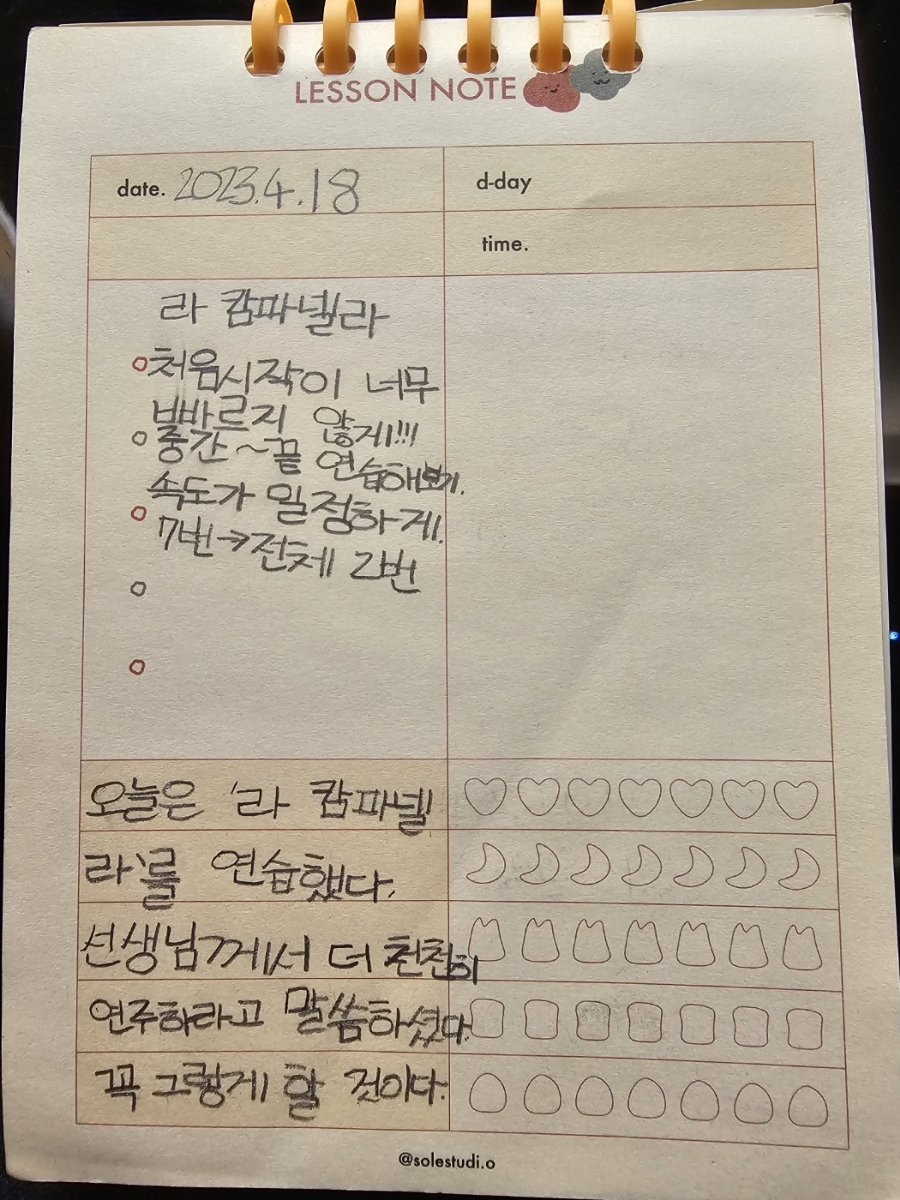 LESSON NOTE
date. 2023.4.18
d-day
time.
라 캄파넬라
처음시작이 너무
빠바르지 않게!!!
중간~끝 연습해보기.
속도가 일정하게.
7번→전체 2번
오늘은 '라 캄파넬
라'를 연습했다.
선생님께서 더 천천히
연주하라고 말씀하셨다.
꼭 그렇게 할 것이다.
@solestudi.o